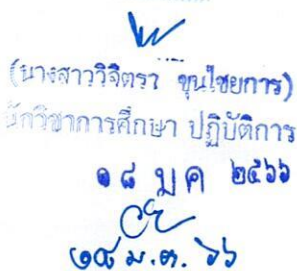 (นางสาววิจิตรา ขุนไชยการ)
นักวิชาการศึกษา ปฏิบัติการ
๑๘ มค ๒๕๖๖
๑๘ ม.ค. ๖๖